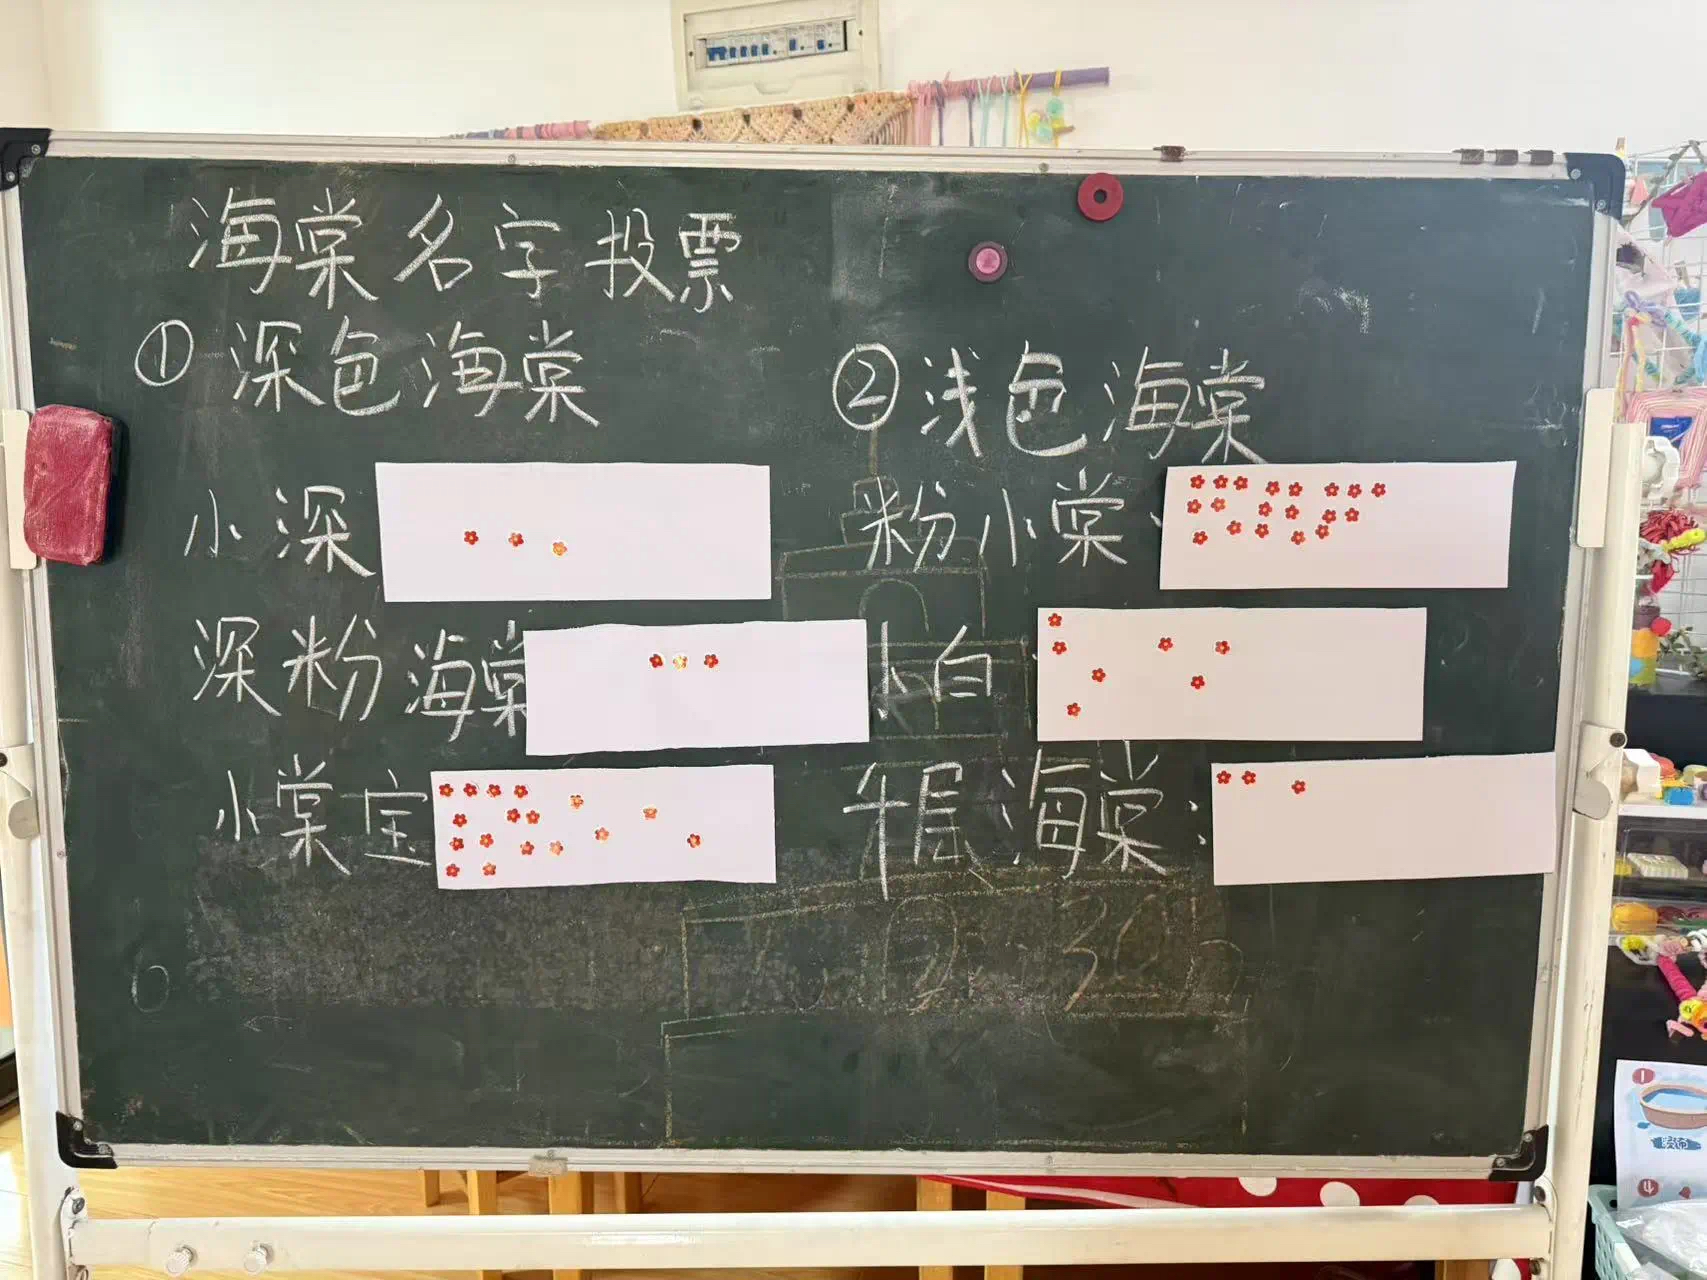 海棠名字投票
①深色海棠
小深
深粉海棠
小棠宝
②浅色海棠
粉小棠:
小白:
海棠:
1
4